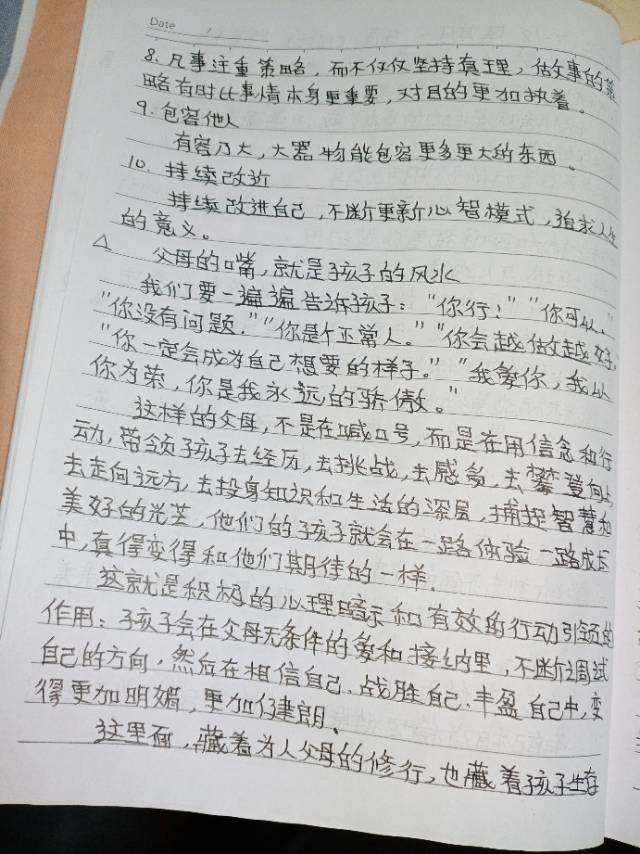 Date
8. 凡事注重策略, 而不仅仅坚持真理, 做事的策
略有时比事情本身更重要, 对目的更加执着。
9. 包容他人
有容乃大, 大器物能包容更多更大的东西。
10. 持续改近
持续改进自己, 不断更新心智模式, 追求人生
的意义。
△ 父母的嘴, 就是孩子的风水
我们要一遍遍告诉孩子: "你行!" "你可以。"
"你没有问题." "你是个正常人。" "你会越做越好,"
"你一定会成为自己想要的样子。" "我爱你, 我以
你为荣, 你是我永远的骄傲。"
这样的父母, 不是在喊口号, 而是在用信念和行
动, 带领孩子去经历, 去挑战, 去感象, 去攀登向上
去走向远方, 去投身知识和生活的深层, 捕捉智慧和
美好的光芒, 他们的孩子就会在一路体验一路成长
中, 真得变得和他们期待的一样.
这就是积极的心理暗示和有效的行动引领的
作用: 孩子会在父母无条件的爱和接纳里, 不断调试
自己的方向, 然后在相信自己、战胜自己、丰盈自己中, 变
得更加明媚, 更加健朗、
这里面, 藏着为人父母的修行, 也藏着孩子生存